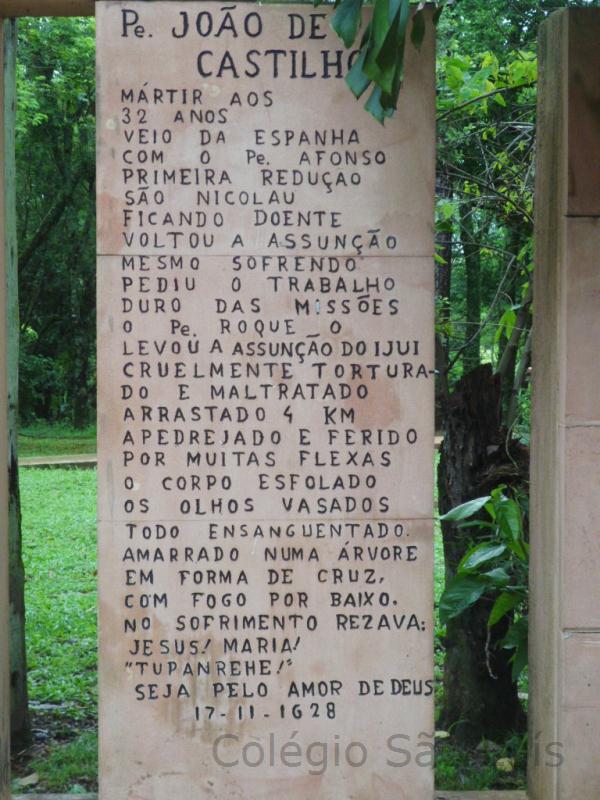 Pe. JOÃO DE
CASTILHO
MÁRTIR AOS
32 ANOS
VEIO DA ESPANHA
COM O Pe. AFONSO
PRIMEIRA REDUÇAO
SÃO NICOLAU
FICANDO DOENTE
VOLTOU A ASSUNÇÃO
MESMO SOFRENDO
PEDIU O TRABALHO
DURO DAS MISSÕES
O Pe. ROQUE O
LEVOU A ASSUNÇÃO DO IJUI
CRUELMENTE TORTURA-
DO E MALTRATADO
ARRASTADO 4 KM
APEDREJADO E FERIDO
POR MUITAS FLEXAS
O CORPO ESFOLADO
OS OLHOS VASADOS
TODO ENSANGUENTADO.
AMARRADO NUMA ÁRVORE
EM FORMA DE CRUZ,
COM FOGO POR BAIXO.
NO SOFRIMENTO REZAVA:
JESUS! MARIA!
"TUPANREHE!"
SEJA PELO AMOR DE DEUS
17-11-1628
Colégio São Luís